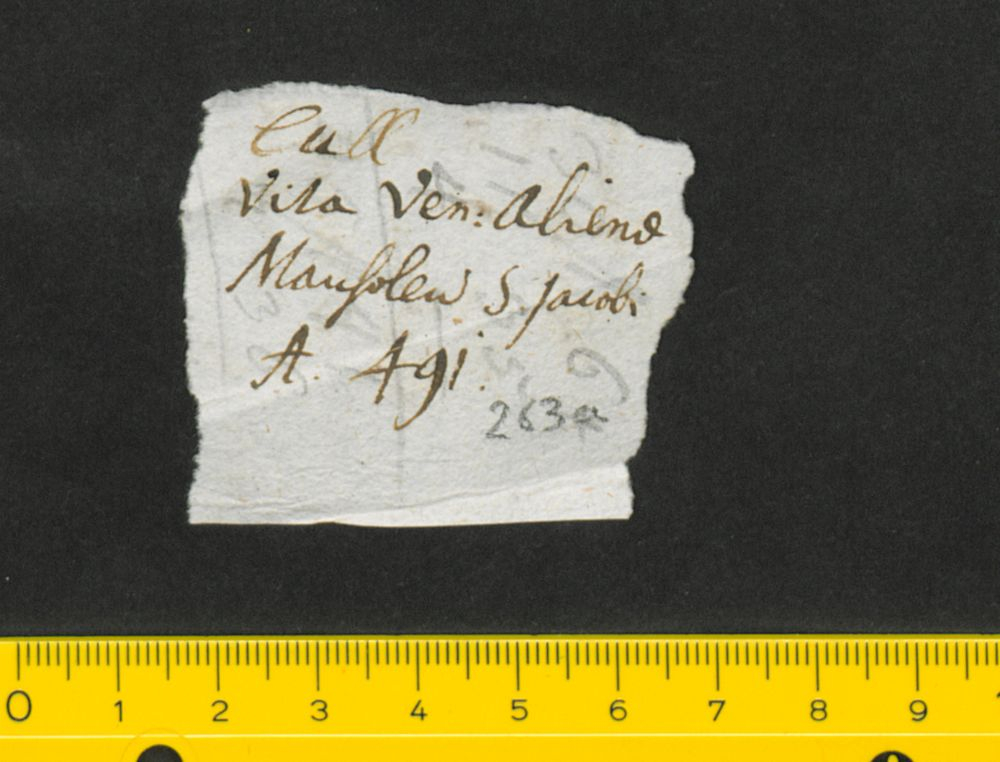 Call
Vita Ven: Aliene
Mausoleu S. Jacobi
A. 491.
263a
0 1 2 3 4 5 6 7 8 9